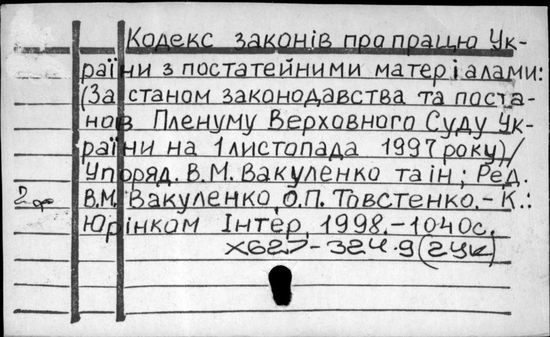 Кодекс законів про працю Ук-
раїни з постатейними матеріалами:
(За станом законодавства та поста-
нов Пленуму Верховного Суду Ук-
раїни на 1 листопада 1997 року)/
Упоряд. В.М. Вакуленко та ін; Ред.
В.М. Вакуленко, О.П. Товстенко. – К.:
Юрінком Інтер, 1998. – 1040с.
Х627-324.9(2УК)